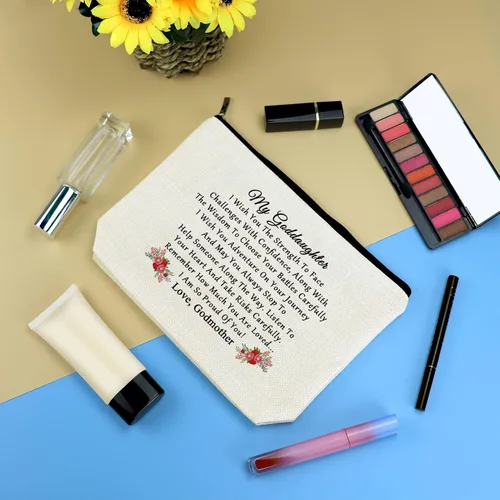 My Goddaughter
I Wish You The Strength To Face
Challenges With Confidence, Along With
The Wisdom To Choose Your Battles Carefully
I Wish You Adventure On Your Journey
And May You Always Stop To
Help Someone Along The Way. Listen To
Your Heart And Take Risks Carefully.
Remember How Much You Are Loved...
I Am So Proud Of You!
Love, Godmother